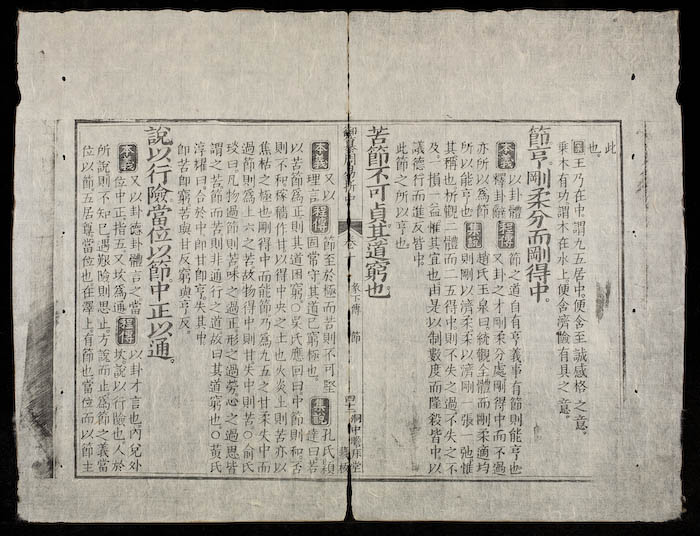 此
也。
案 王乃在中謂九五居中。便含至誠感格之意。
乘木有功謂木在水上便含濟險有具之意。
節亨。剛柔分而剛得中。
本義 以卦體
釋卦辭
程傳 節之道自有亨義事有節則能亨也
又卦之才剛柔分處剛得中而不過
亦所以為節
所以能亨也
集說 趙氏玉泉曰統觀全體而剛柔適均
則剛以濟柔柔以濟剛一張一弛惟
其稱也析觀二體而二五得中則不失之過不失之不
及一損一益惟其宜也由是以制數度而隆殺皆中以
議德行而進反皆中。
此節之所以亨也
苦節不可貞其道窮也
御纂周易折中 卷十 彖下傳 節 四十一
本義 又以
理言
程傳 節至於極而苦則不可堅
固常守其道已窮極也。
集說 孔氏穎
達曰若
以苦節為正則其道困窮〇吳氏應回曰中節則和否
則不和稼穡作甘以得中央之土也火炎上則苦亦以
焦枯之極也剛得中而能節乃為九五之甘柔失中而
過節則為上六之苦故物得中則甘失中則苦〇俞氏
琰曰凡物過節則苦味之過正形之過勞心之過思皆
謂之苦節而苦則非通行之道故曰其道窮也〇黃氏
淳耀曰合於中即甘即亨失其中
即苦即窮苦與甘反窮與亨反
說以行險當位以節中正以通。
本義 又以卦德卦體言之當
位中正指五又坎為通
程傳 以卦才言也內兌外
坎說以行險也人於
所說則不知已遇艱險則思止。方說而止為節之義當
位以節五居尊當位也在澤上有節也當位而以節主